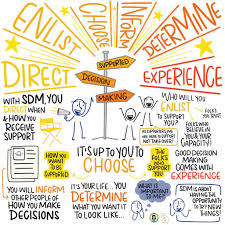 ENLIST
CHOOSE
INFORM
DETERMINE
DIRECT
SUPPORTED
DECISION
MAKING
EXPERIENCE
WITH SDM, YOU
DIRECT WHEN
& HOW YOU
RECEIVE
SUPPORT
WHO WILL YOU
ENLIST
TO SUPPORT
YOU?
FOLKS
YOU TRUST
FOLKS WHO
BELIEVE IN
YOU & YOUR
CAPACITY!
AS SUPPORTERS, WE
ARE HERE TO SUPPORT
NOT TAKE OVER!
HOW YOU
WANT TO BE
SUPPORTED
IT'S UP TO YOU TO
CHOOSE
THE
FOLKS
WHO
SUPPORT
YOU
GOOD DECISION
MAKING
COMES WITH
EXPERIENCE
YOU WILL INFORM
OTHER PEOPLE OF
HOW YOU MAKE
DECISIONS
IT'S YOUR LIFE... YOU
DETERMINE
WHAT YOU WANT IT
TO LOOK LIKE...
WHAT IS
IMPORTANT
TO ME?
SDM IS ABOUT
HAVING THE
OPPORTUNITY
TO TRY NEW
THINGS!